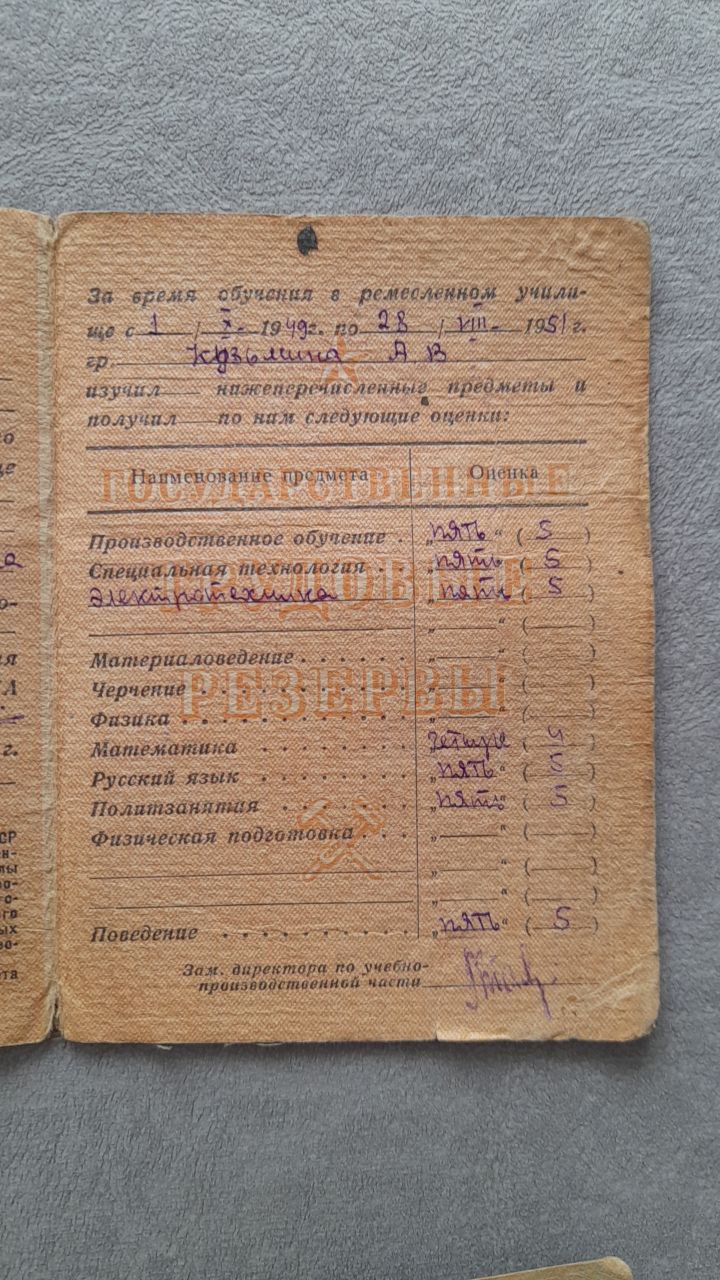 За время обучения в ремесленном учили-
ще с 1 / X - 1949 г. по 28 / VIII - 1951 г.
гр. Кузьмина А В
изучил нижеперечисленные предметы и
получил по ним следующие оценки:
Наименование предмета Оценка
ГОСУДАРСТВЕННЫЕ
Производственное обучение . „пять“ ( 5 )
Специальная технология . . „пять“ ( 5 )
ТРУДОВЫЕ
Электротехника „пять“ ( 5 )
„ “ ( )
Материаловедение . . . . . . „ “ ( )
Черчение . . . . . . . . . . „ “ ( )
РЕЗЕРВЫ
Физика . . . . . . . . . . . „ “ ( )
Математика . . . . . . . „четыре“ ( )
Русский язык . . . . . . . „пять“ ( 5 )
Политзанятия . . . . . . „пять“ ( 5 )
Физическая подготовка . . . „ “ ( )
„ “ ( )
„ “ ( )
Поведение . . . . . . . . . „пять“ ( 5 )
Зам. директора по учебно-
производственной части
о
ще
а
о-
ия
г.
СР
ен-
лы
во-
го-
ого
ых
во-
ота